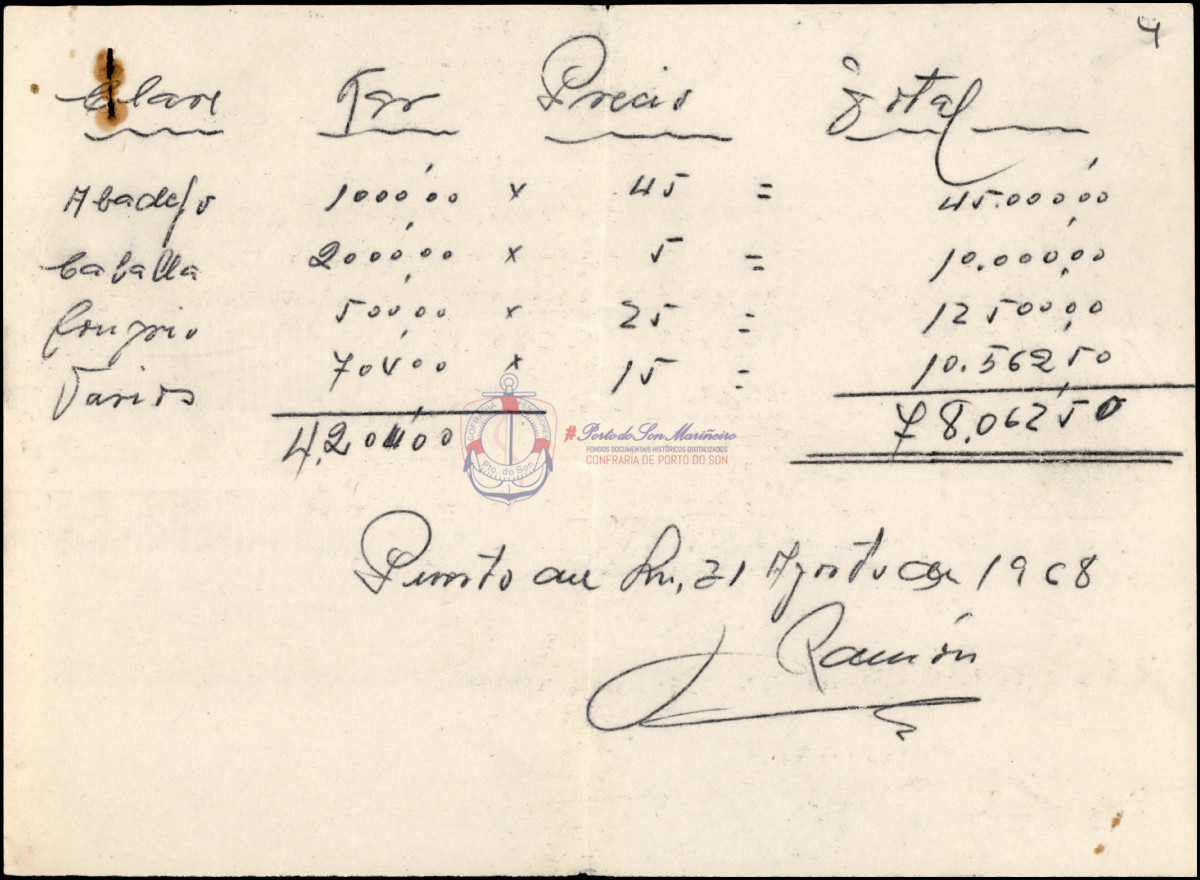 4
Clase Kgr Precio Total
Abadejo 1000'00 x 45 = 45.000'00
Caballa 2000'00 x 5 = 10.000'00
Congrio 500'00 x 25 = 12500'00
Varios x 15 = 10.562'50
78.062'50
COFRADIA PESCADORES
Pto. do Son
#Porto do Son Mariñeiro
FONDOS DOCUMENTAIS HISTÓRICOS DIXITALIZADOS
CONFRARÍA DE PORTO DO SON
Puerto del Son, 31 Agosto de 1968
Ramón